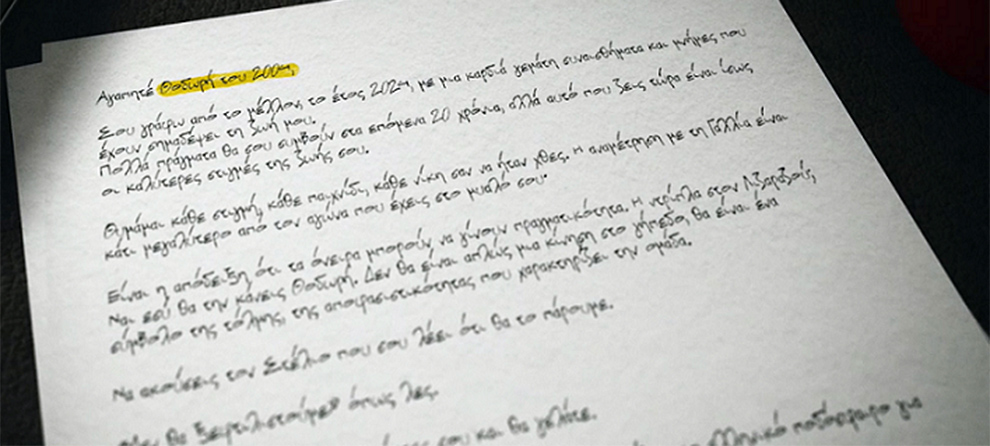 Αγαπητέ Θοδωρή του 2004,
Σου γράφω από το μέλλον, το έτος 2024, με μια καρδιά γεμάτη συναισθήματα και μνήμες που
έχουν σημαδέψει τη ζωή μου.
Πολλά πράγματα θα σου συμβούν στα επόμενα 20 χρόνια, αλλά αυτό που ζεις τώρα είναι ίσως
οι καλύτερες στιγμές της ζωής σου.
Θυμάμαι κάθε στιγμή, κάθε παιχνίδι, κάθε νίκη σαν να ήταν χθες. Η αναμέτρηση με τη Γαλλία είναι
κάτι μεγαλύτερο από τον αγώνα που έχεις στο μυαλό σου·
Είναι η απόδειξη ότι τα όνειρα μπορούν να γίνουν πραγματικότητα. Η ντρίπλα στον Λιζαραζού;
Ναι εσύ θα την κάνεις Θοδωρή. Δεν θα είναι απλώς μια κίνηση στο γήπεδο, θα είναι ένα
σύμβολο της τόλμης, της αποφασιστικότητας που χαρακτηρίζει την ομάδα.
Να ακούσεις τον Στέλιο που σου λέει ότι θα το πάρουμε.
θα ξεφτιλιστούμε" όπως λες.
σου και θα γελάτε.
ποδόσφαιρο για